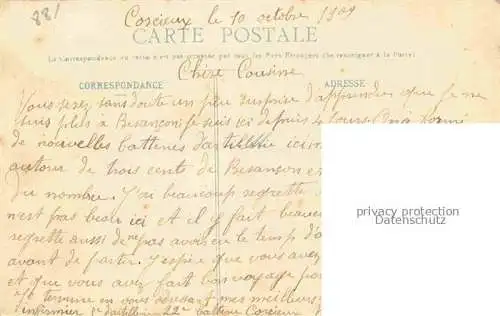 881
Corcieux le 10 octobre 1909
CARTE POSTALE
La Correspondance au recto n'est pas acceptée par tous les Pays Étrangers (Se renseigner à la Poste)
Chère Cousine
CORRESPONDANCE
ADRESSE
Vous serez sans doute un peu surprise d'apprendre que je ne
suis plus à Besançon je suis ici depuis 4 jours On a formé
de nouvelles batteries d'artillerie ici
autour de trois cents de Besançon
du nombre. J'ai beaucoup regretté
n'est pas beau ici et il y fait
regrette aussi de ne pas avoir eu le temps
avant de partir. J'espère que vous
et que vous avez fait bon voyage
Je termine en vous
infirmier artillerie 22e batterie Corcieux
privacy protection
Datenschutz